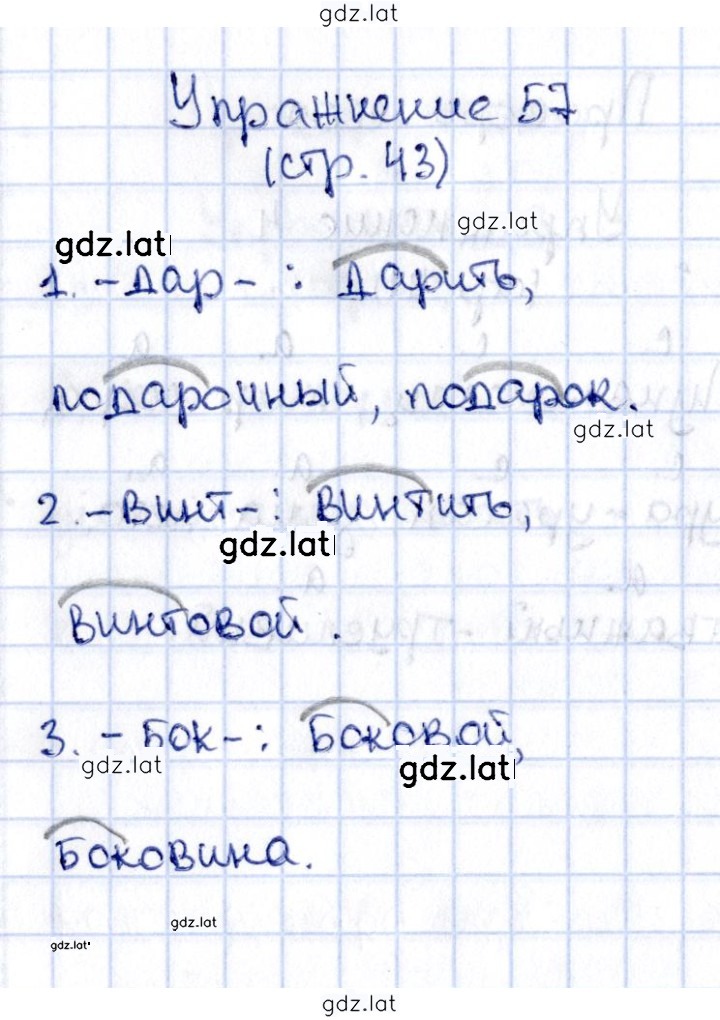 gdz.lat
Упражнение 57
(стр. 43)
gdz.lat
gdz.lat
1. -дар- : Дарить,
подарочный, подарок.
gdz.lat
2. -винт-: винтить,
gdz.lat
винтовой.
3. -Бок-: Боковой,
gdz.lat
gdz.lat
Боковина.
gdz.lat
gdz.lat
gdz.lat